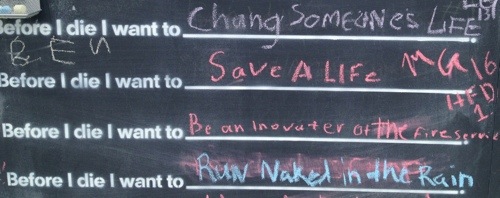 Before I die I want to Chang SOMEONES LIFE
BEN
Before I die I want to Save A LIFe MG 16
HFD
Before I die I want to Be an Inovater of The fire servi
Before I die I want to RUN Naked in the Rain